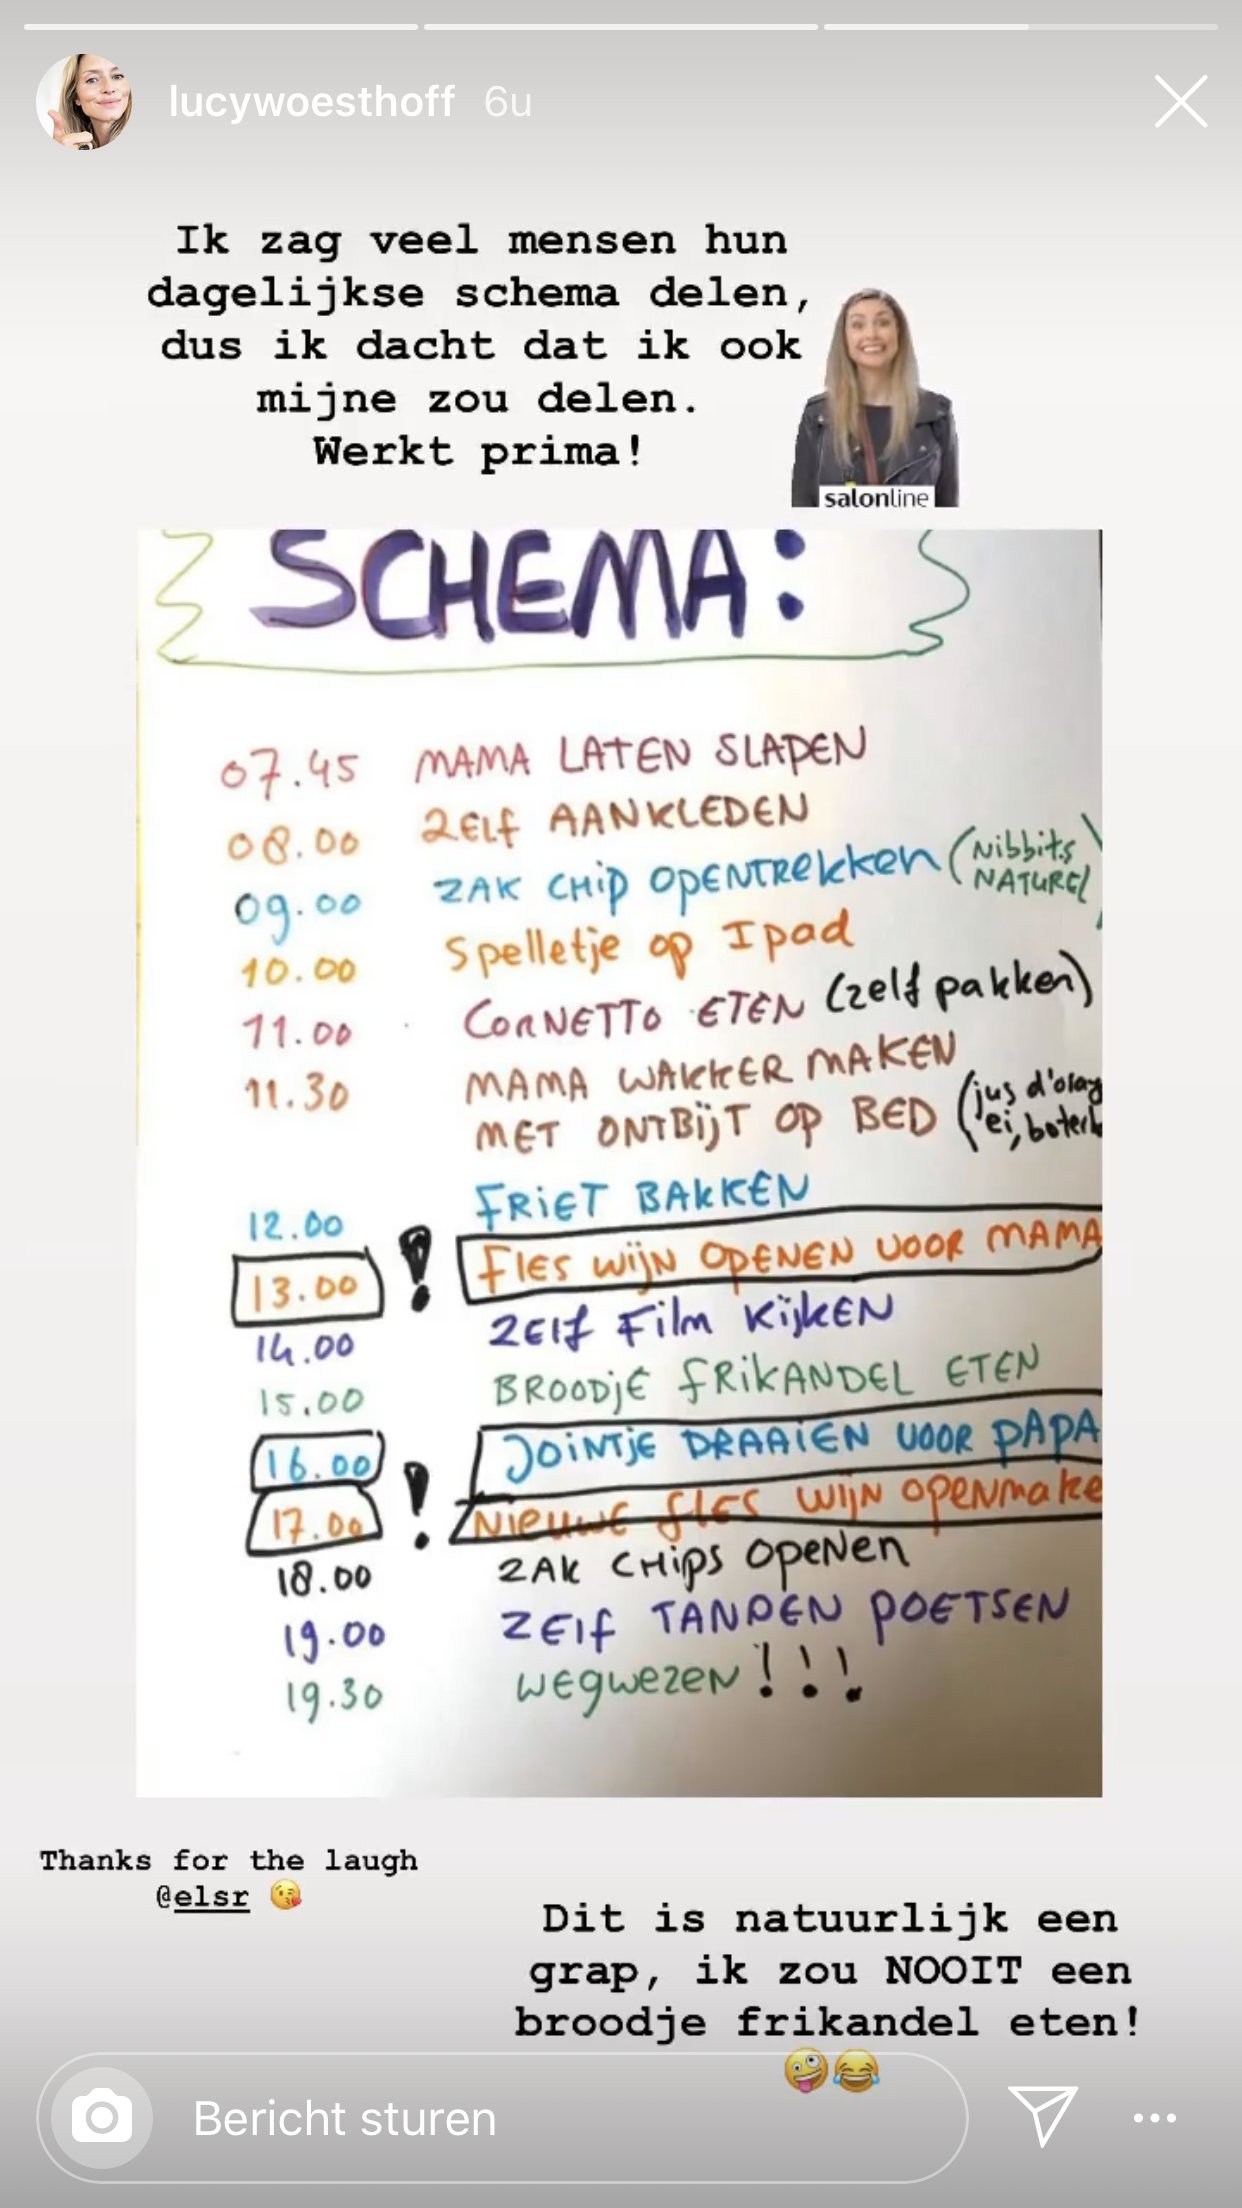 lucywoesthoff 6u
Ik zag veel mensen hun
dagelijkse schema delen,
dus ik dacht dat ik ook
mijne zou delen.
Werkt prima!
salonline
SCHEMA:
07.45 MAMA LATEN SLAPEN
08.00 ZELF AANKLEDEN
09.00 ZAK CHIP OPENTREKKEN (NIBBITS
NATUREL)
10.00 Spelletje op Ipad
11.00 CORNETTO ETEN (zelf pakken)
11.30 MAMA WAKKER MAKEN
MET ONTBIJT OP BED (jus d'
ei,
12.00 FRIET BAKKEN
13.00 ! FLES WIJN OPENEN VOOR MAMA
14.00 ZELF FILM KIJKEN
15.00 BROODJE FRIKANDEL ETEN
16.00 JOINTJE DRAAIEN VOOR PAPA
17.00 ! NIEUWE FLES WIJN OPENMAKE
18.00 ZAK CHIPS OPENEN
19.00 ZELF TANDEN POETSEN
19.30 WEGWEZEN!!!
Thanks for the laugh
@elsr 😘
Dit is natuurlijk een
grap, ik zou NOOIT een
broodje frikandel eten!
🤪😂
Bericht sturen